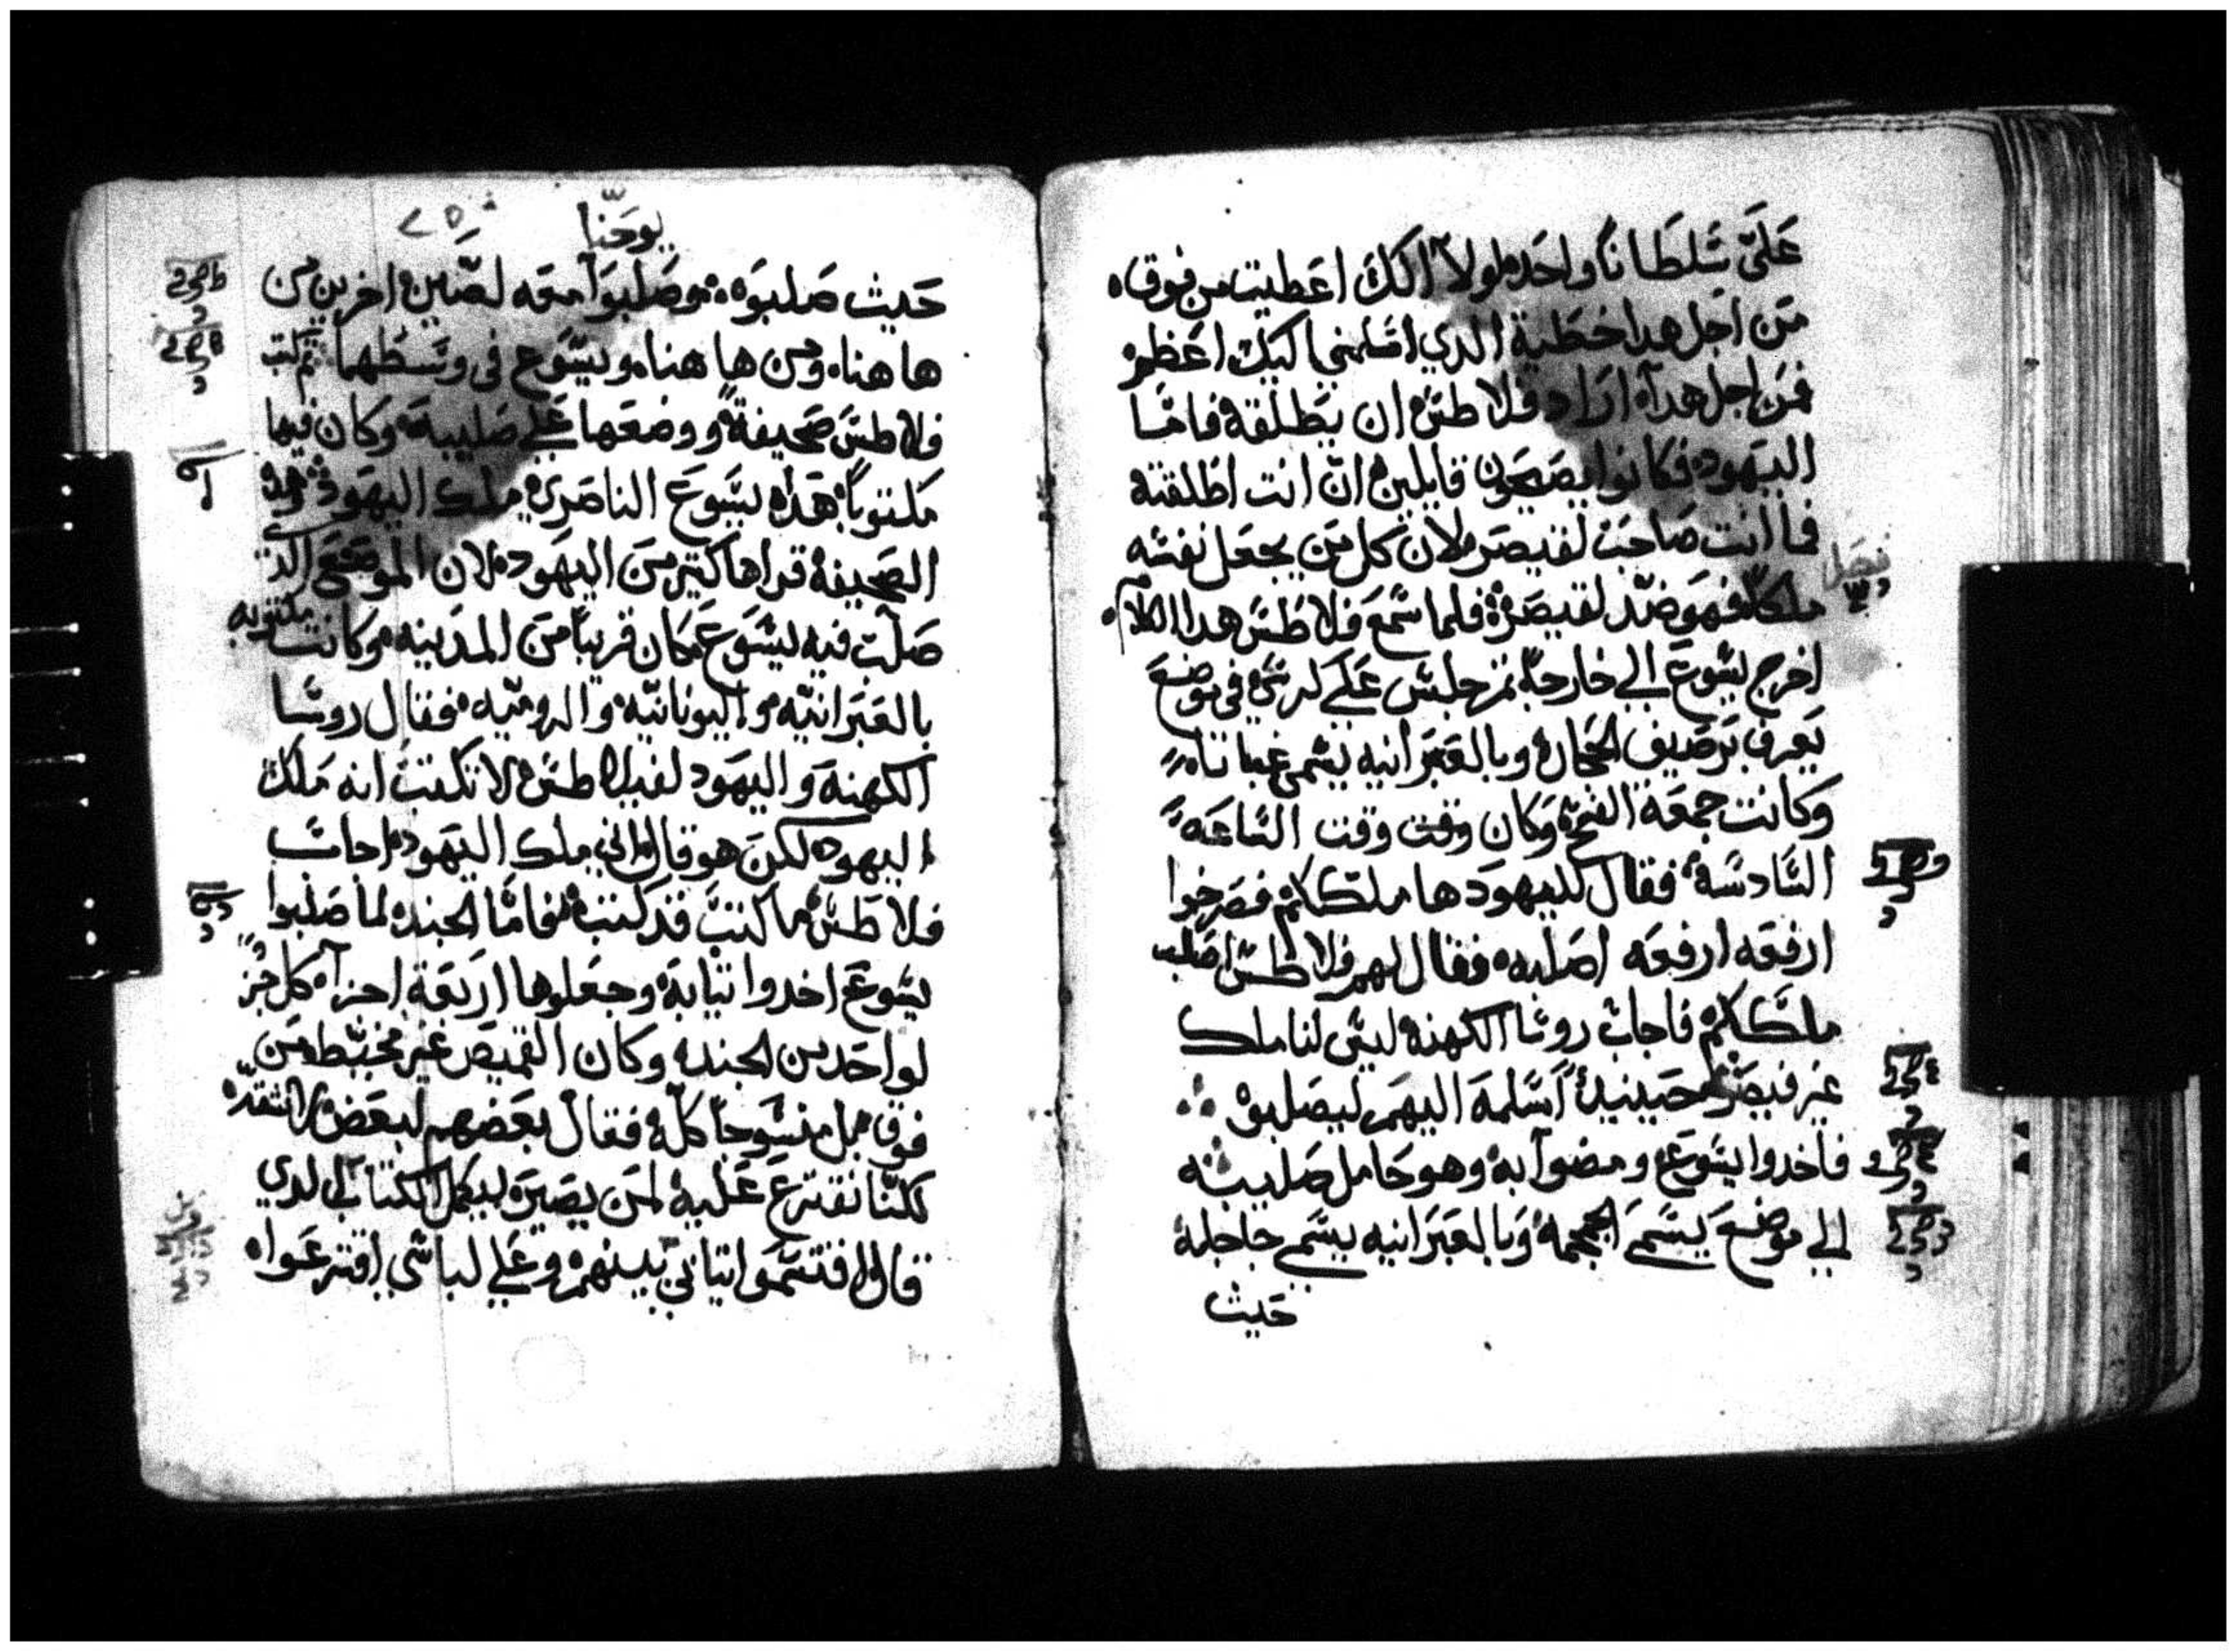 عَليَّ سُلطَاناً واحَده لولا آلكَ اعَطيت من فوق
مَن اجَل هدا خطَية الدي اسَلمني اليك اعَظم
فمَن اجل هدآ اراد فلاطسَ ان يَطلقة فامَا
اليَهود فكانوا يصَيحَون قايلين انّ انت اطَلقته
فما انت صَاحَبَ لقيصَر لان كل مَن يجعَل نفسَه
فصَل
ملكاً فهَو ضَد لقيصَر فلما سَمعَ فلاطسَ هدا الكلام
اخرج يسَوعَ الي خارجاً تم جلسَ عَلي كرسَي في موضعَ
يَعرف برَصَيف الحجَاره وبالعَبَرانيه يسَمي غباتا
وَكانت جمعَة الفصَح وَكان وقت وقت السَاعَه
السَادسَة فقال لليهودَ ها ملككم فصَرخوا
ارفعَه ارفعَه اصَلبه فقال لهم فلاطسَ اصَلب
ملككم فاجابَ روسَا الكهنة ليسَ لنا ملك
غير قيصَر حَينيد اسَلمة اليهم ليصَلبوه
فاخدوا يسَوعَ ومضوآ به وهو حَامل صَليبه
الي موضعَ يسَمَي الجمجمة وَبالعَبَرانيه يسَمي جاجلة
حَيث
يوحَنّا
حَيث صَلبوَه وصَلبوَآ معَه لصَين اخرين من
ها هنا ومن ها هنا ويسَوع في وسَطهما تم كتب
فلاطسَ صَحيفة ووضعَها عَلي صَليبة وَكان فيها
مكتوباً هَدا يسَوعَ الناصَري ملك اليهَود وهده
الصَحَيفة قراها كتير مَن اليهَود لان الموضعَ الدي
صَلَب فيه يسَوعَ كان قريباً مَن المدَينه وكانت مكتوبه
بالعَبَرانيّه واليونانيّه والروميّه فقال روسَا
الكهنة وَاليهَود لفيلاطسَ لا تكتب انه مَلك
اليهود لكن هو قال اني ملك اليَهود اجابَ
فلاطسَ ما كتبتَ قد كتبت فامَا الجند لما صَلبوا
يسَوعَ اخدوا تيابة وجعَلوها اربَعَة اجزآ كل جز
لواحَد من الجند وكان القميَص غير مخيّط مَن
فوق بل منسَوجاً كلّه فقال بعَضَهم لبعَض لا نشقّه
لكنّا نقترعَ عَليه لمَن يصَير ليكمل الكتاب الدي
قال اقتسَمَوا تيابي بَينهم وعَلي لباسَي اقترعَوا